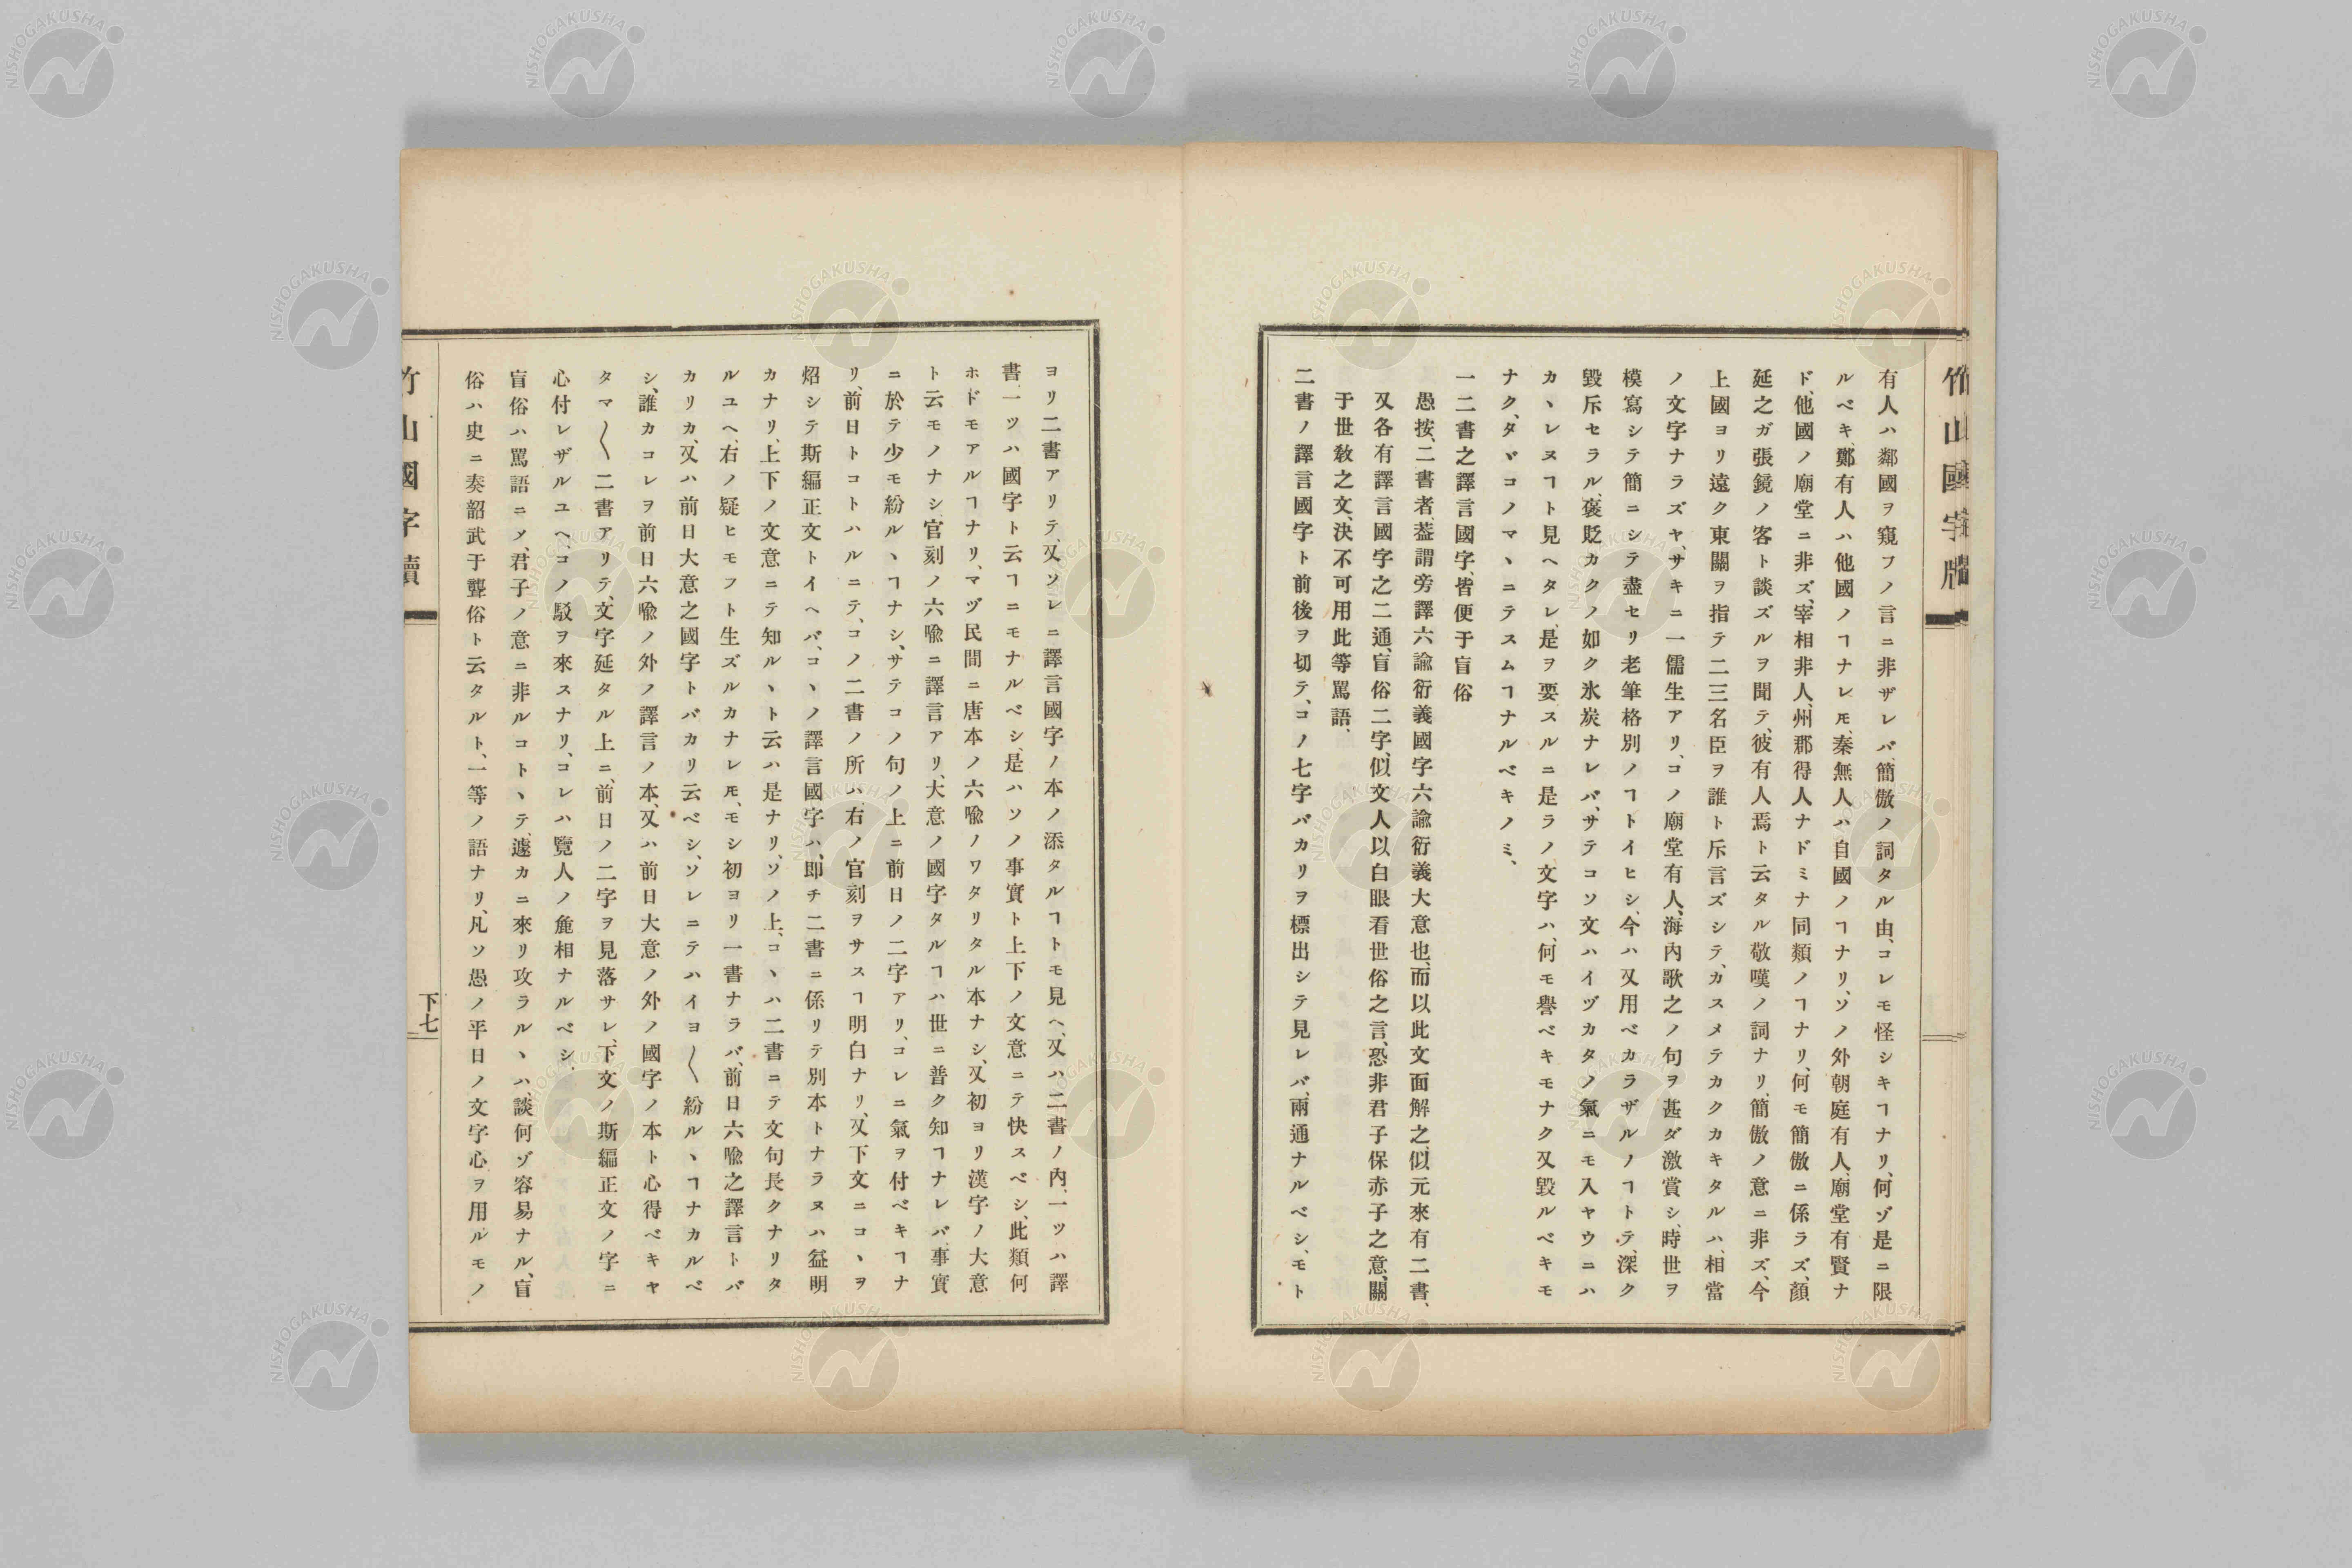 有人ハ鄰國ヲ窺フノ言ニ非ザレバ、簡傲ノ詞タル由、コレモ怪シキヿナリ、何ゾ是ニ限
ルベキ、鄭有人ハ他國ノヿナレ𪜈、秦無人ハ自國ノヿナリ、ソノ外朝庭有人、廟堂有賢ナ
ド、他國ノ廟堂ニ非ズ、宰相非人、州郡得人ナドミナ同類ノヿナリ、何モ簡傲ニ係ラズ、顔
延之ガ張鏡ノ客ト談ズルヲ聞テ、彼有人焉ト云タル敬嘆ノ詞ナリ、簡傲ノ意ニ非ズ、今
上國ヨリ遠ク東關ヲ指テ二三名臣ヲ誰ト斥言ズシテ、カスメテカクカキタルハ、相當
ノ文字ナラズヤ、サキニ一儒生アリ、コノ廟堂有人、海內歌之ノ句ヲ甚ダ激賞シ、時世ヲ
模寫シテ簡ニシテ盡セリ老筆格別ノヿトイヒシ、今ハ又用ベカラザルノヿトテ、深ク
毀斥セラル、褒貶カクノ如ク氷炭ナレバ、サテコソ文ハイヅカタノ氣ニモ入ヤウニハ
カヽレヌヿト見ヘタレ、是ヲ要スルニ是ラノ文字ハ、何モ譽ベキモナク又毀ルベキモ
ナク、タヾコノマヽニテスムヿナルベキノミ、
一二書之譯言國字、皆便于盲俗
愚按、二書者、葢謂旁譯六諭衍義國字六諭衍義大意也、而以此文面解之、似元來有二書、
又各有譯言國字之二通、盲俗二字、似文人以白眼看世俗之言、恐非君子保赤子之意、關
于世敎之文、決不可用此等罵語、
二書ノ譯言國字ト前後ヲ切テ、コノ七字バカリヲ標出シテ見レバ、兩通ナルベシ、モト
ヨリ二書アリテ、又ソレニ譯言國字ノ本ノ添タルヿトモ見ヘ、又ハ二書ノ內、一ツハ譯
書一ツハ國字ト云ヿニモナルベシ、是ハソノ事實ト上下ノ文意ニテ快スベシ、此類何
ホドモアルヿナリ、マヅ民間ニ唐本ノ六喩ノワタリタル本ナシ、又初ヨリ漢字ノ大意
ト云モノナシ、官刻ノ六喩ニ譯言アリ、大意ノ國字タルヿハ世ニ普ク知ヿナレバ、事實
ニ於テ少モ紛ルヽヿナシ、サテコノ句ノ上ニ前日ノ二字アリ、コレニ氣ヲ付ベキヿナ
リ、前日トコトハルニテ、コノ二書ノ所ハ、右ノ官刻ヲサスヿ明白ナリ、又下文ニコヽヲ
炤シテ斯編正文トイヘバ、コヽノ譯言國字ハ、即チ二書ニ係リテ別本トナラヌハ益明
カナリ、上下ノ文意ニテ知ルヽト云ハ是ナリ、ソノ上、コヽハ二書ニテ文句長クナリタ
ルユヘ、右ノ疑ヒモフト生ズルカナレ𪜈、モシ初ヨリ一書ナラバ、前日六喩之譯言トバ
カリカ、又ハ前日大意之國字トバカリ云ベシ、ソレニテハイヨ〱紛ルヽヿナカルベ
シ、誰カコレヲ前日六喩ノ外ノ譯言ノ本、又ハ前日大意ノ外ノ國字ノ本ト心得ベキヤ
タマ〱二書アリテ、文字延タル上ニ、前日ノ二字ヲ見落サレ、下文ノ斯編正文ノ字ニ
心付レザルユヘ、コノ駁ヲ來スナリ、コレハ覽人ノ麁相ナルベシ、
盲俗ハ罵語ニノ、君子ノ意ニ非ルコトヽテ、遽カニ來リ攻ラルヽハ、談何ゾ容易ナル、盲
俗ハ史ニ奏韶武于聾俗ト云タルト、一等ノ語ナリ、凡ソ愚ノ平日ノ文字心ヲ用ルモノ
竹山國字牘
下七